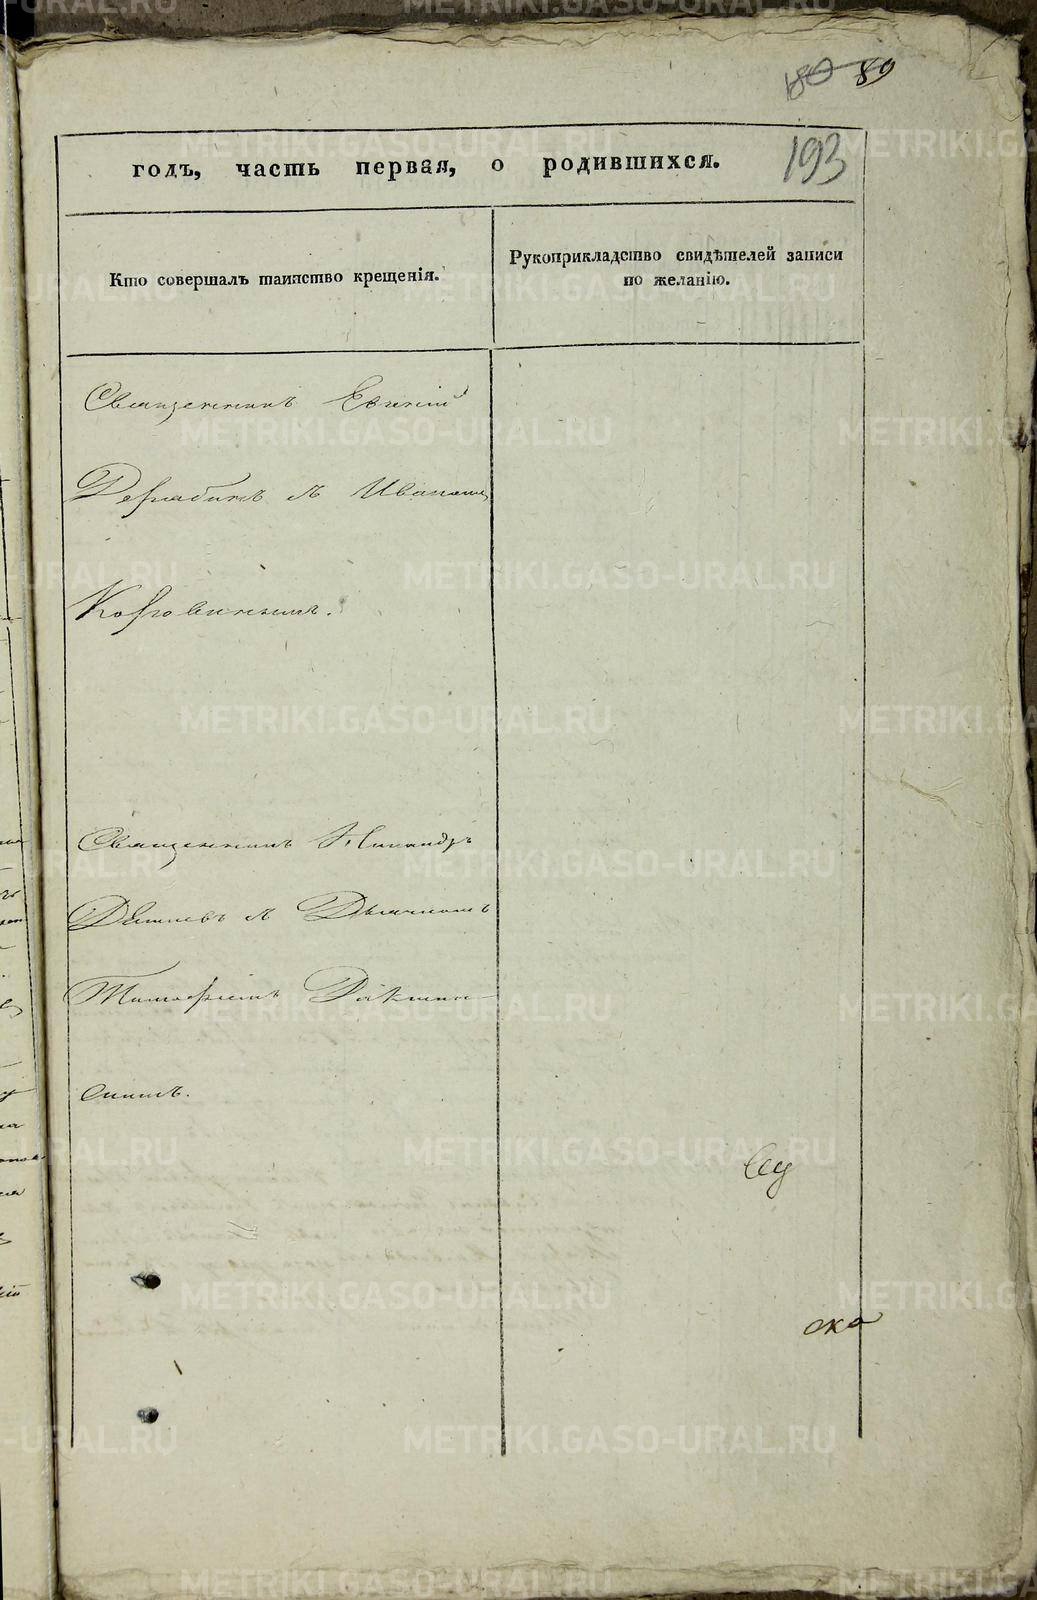 180 89
193
годъ, часть первая, о родившихся.
Кто совершалъ таинство крещенія.
Рукоприкладство свидѣтелей записи
по желанію.
Священникъ Евгеній
Дерябинъ съ Иваномъ
Коровинымъ.
Священникъ Никандръ
съ Дьячкомъ
Тимофеемъ
скимъ.
ско
METRIKI.GASO-URAL.RU